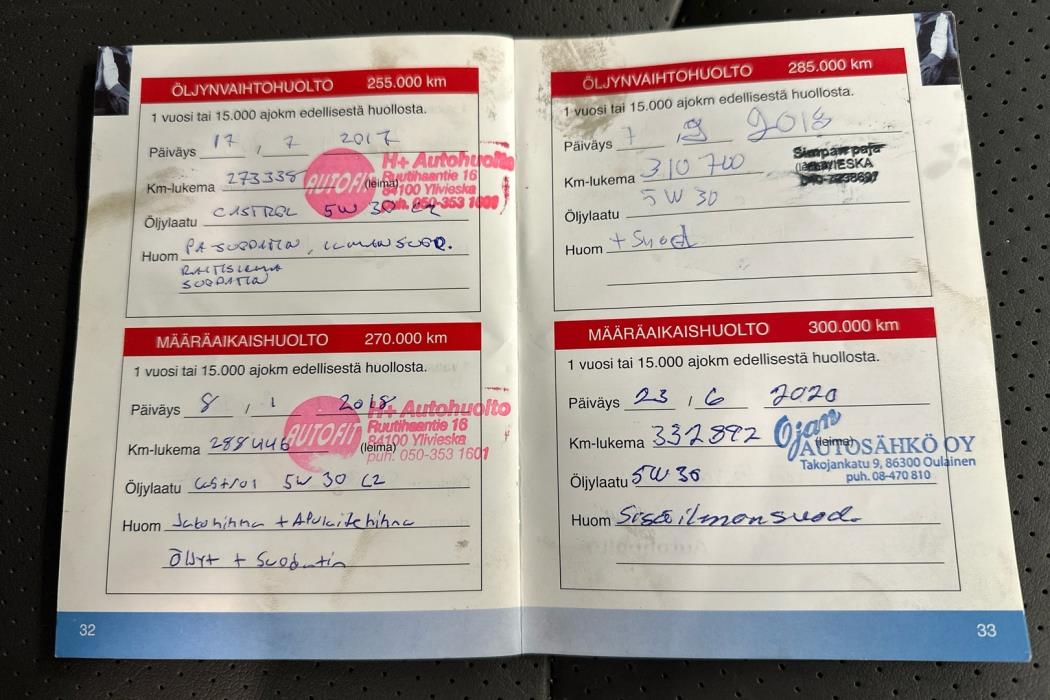 ÖLJYNVAIHTOHUOLTO 255.000 km
1 vuosi tai 15.000 ajokm edellisestä huollosta.
Päiväys 17 , 7 2017
Km-lukema 273338 (leima)
AUTOFIT
H+ Autohuolto
Ruutihaantie 16
84100 Ylivieska
puh. 050-353 1600
Öljylaatu CASTROL 5W 30 C2
Huom PA SUODATIN, ILMANSUOD.
RAITISILMA
SUODATIN
MÄÄRÄAIKAISHUOLTO 270.000 km
1 vuosi tai 15.000 ajokm edellisestä huollosta.
Päiväys 8 / 1 2018
Km-lukema 288446 (leima)
AUTOFIT
H+ Autohuolto
Ruutihaantie 16
84100 Ylivieska
puh. 050-353 1601
Öljylaatu Castrol 5W 30 C2
Huom Jakohihna + Apulaitehihna
Öljyt + Suodatin
32
ÖLJYNVAIHTOHUOLTO 285.000 km
1 vuosi tai 15.000 ajokm edellisestä huollosta.
Päiväys 7 9 2018
Km-lukema 310 700
paja
Öljylaatu 5W 30
Huom + Suod
MÄÄRÄAIKAISHUOLTO 300.000 km
1 vuosi tai 15.000 ajokm edellisestä huollosta.
Päiväys 23 / 6 2020
Km-lukema 332892 (leima)
Ojan
AUTOSÄHKÖ OY
Takojankatu 9, 86300 Oulainen
puh. 08-470 810
Öljylaatu 5W30
Huom Sisäilmansuod.
33